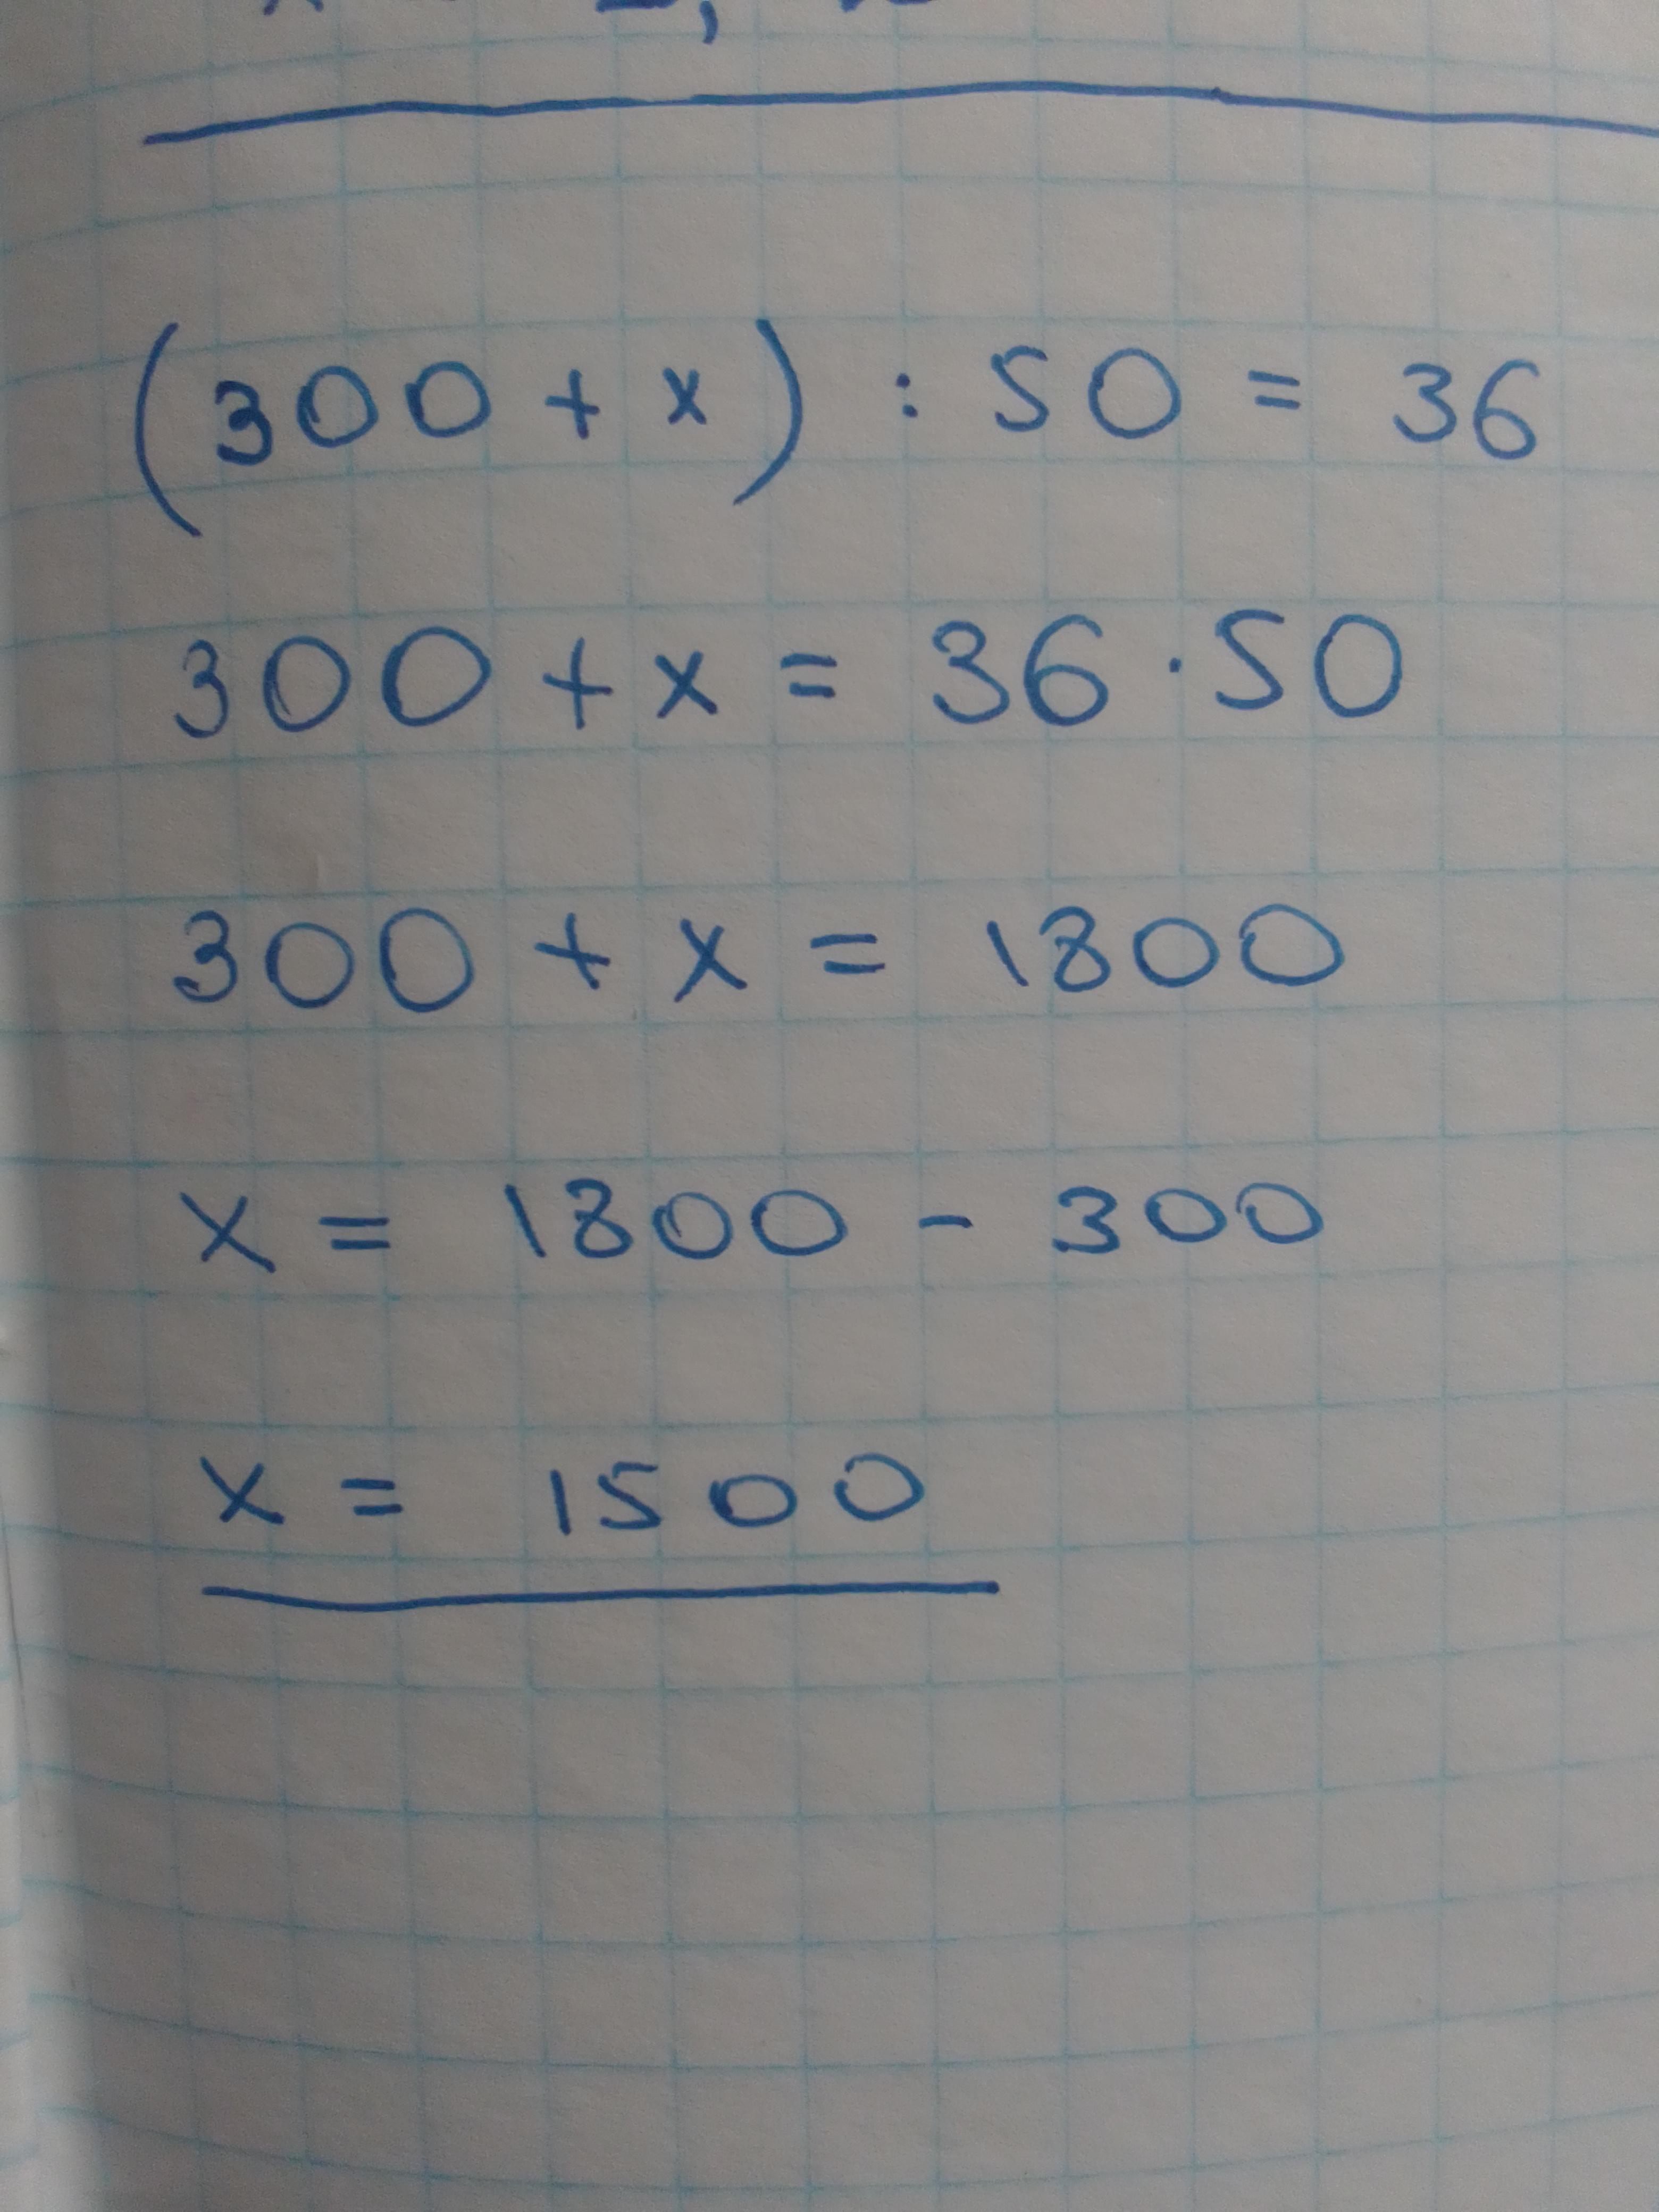 (300 + x) : 50 = 36
300 + x = 36 · 50
300 + x = 1800
x = 1800 - 300
x = 1500